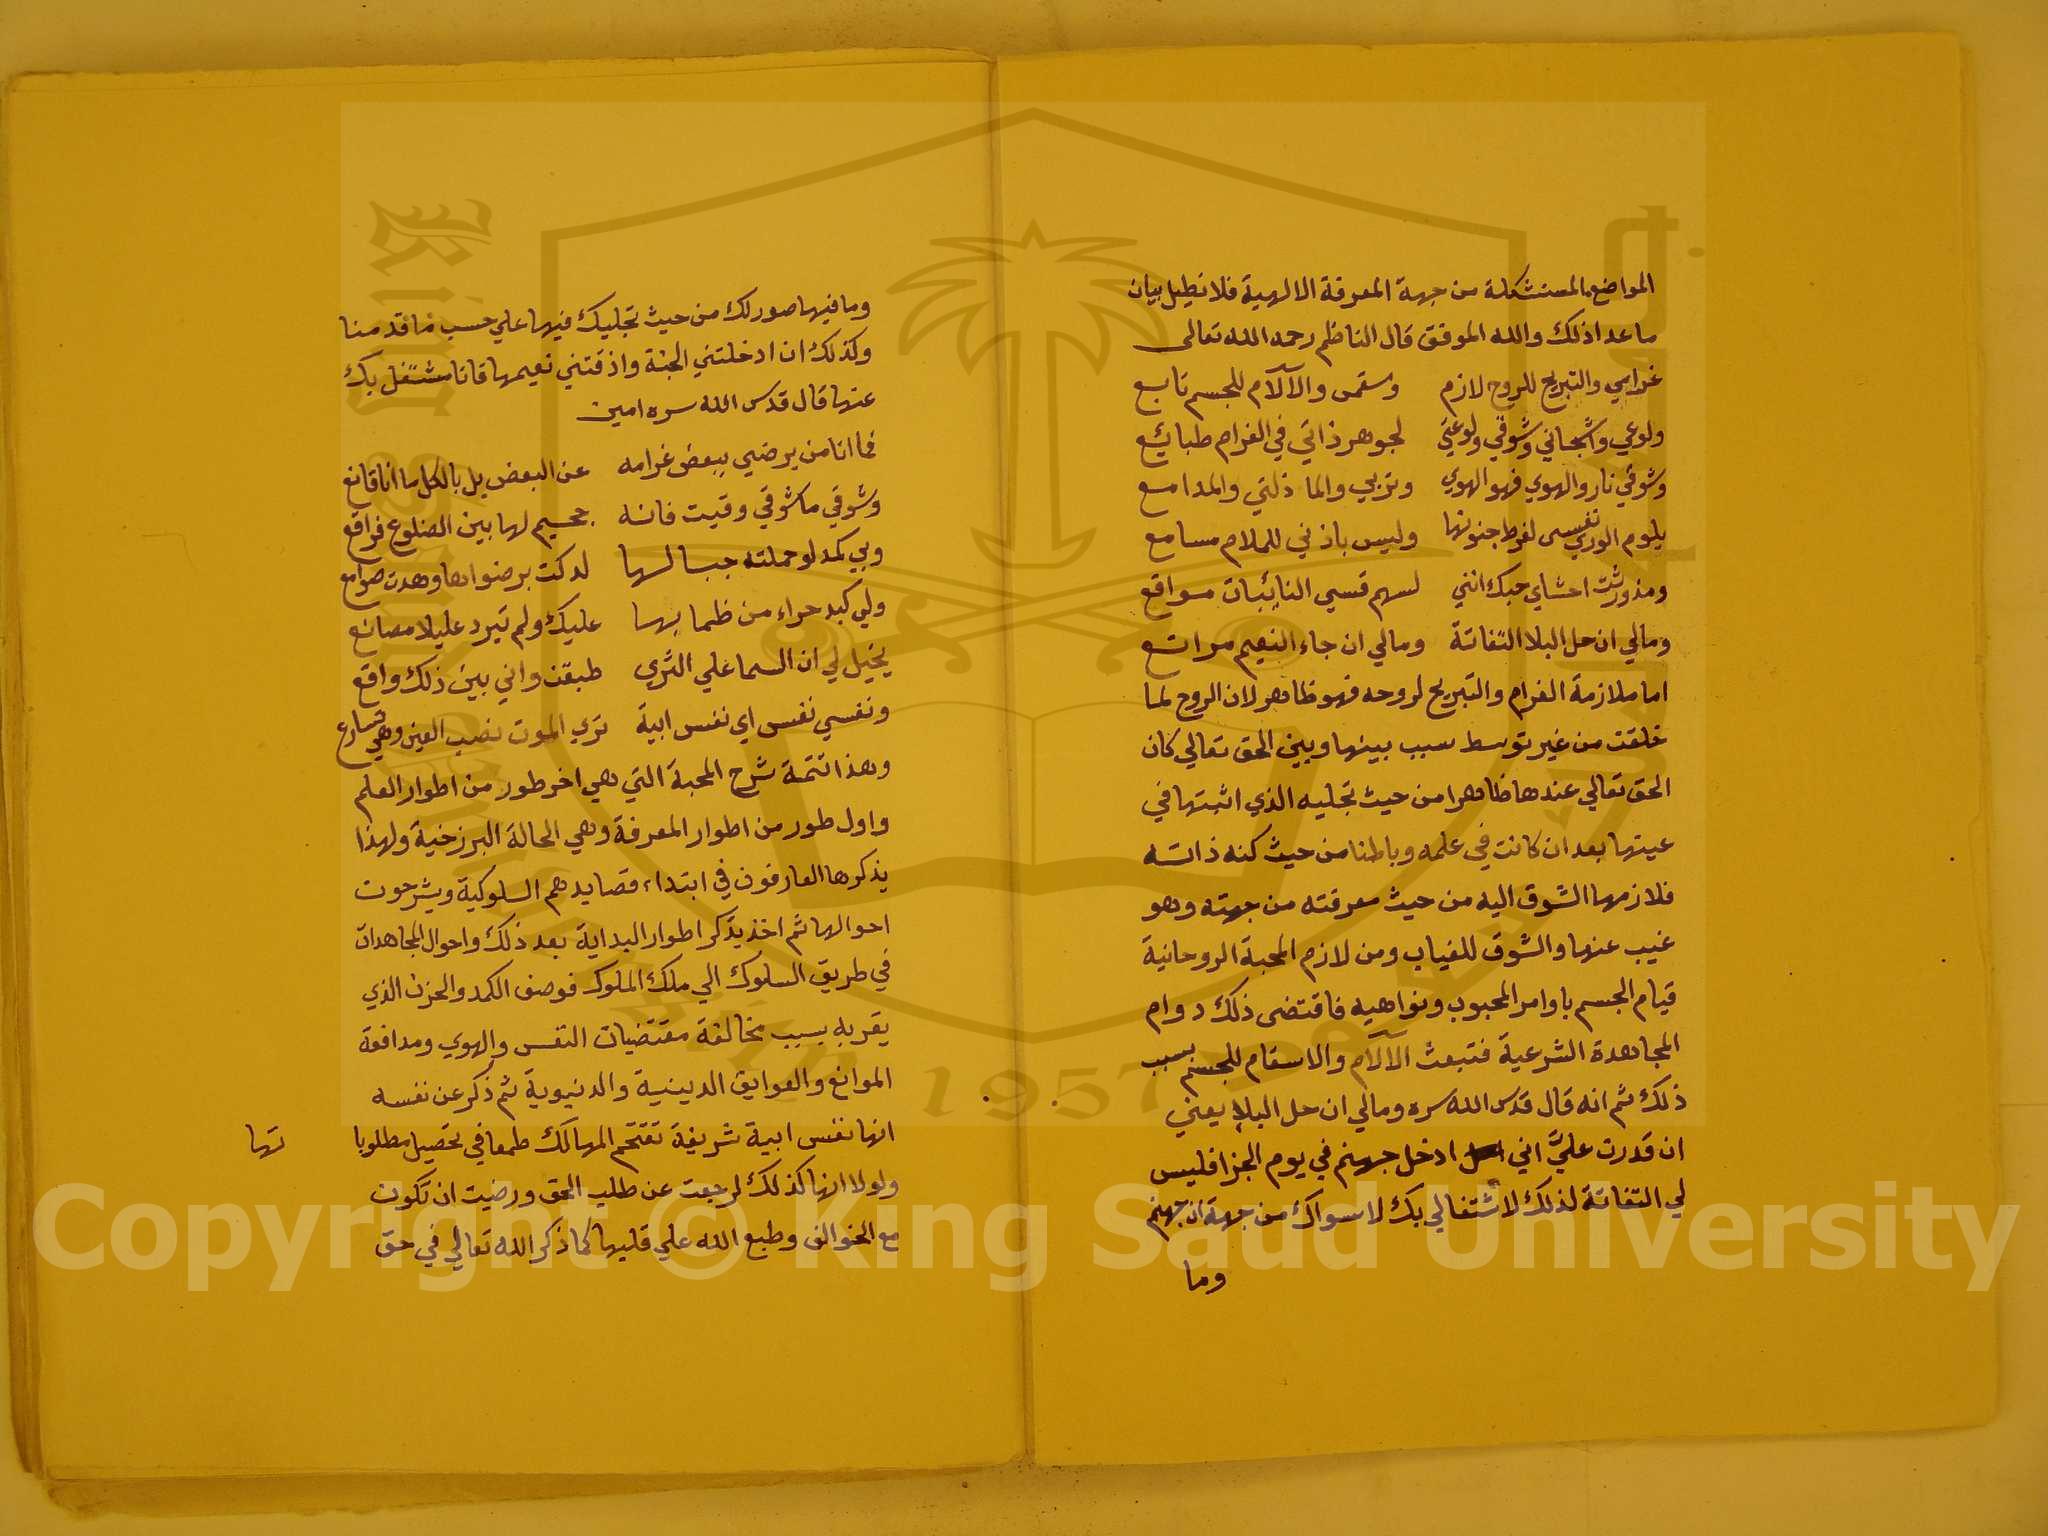 المواضع المستشكلة من جهة المعرفة الالهية فلا نطيل ببيان
ما عدا ذلك والله الموفق قال الناظم رحمه الله تعالى
غرامي والتبريح للروح لازم وسقمي والآلام للجسم تابع
ولوعي واشجاني وشوقي ولوعتي لجوهر ذاتي في الغرام طبائع
وشوقي نار والهوي فهو الهوي وتربي والما ذلتي والمدامع
يلوم الوري نفسي لفرط جنونها وليس باذني للملام مسامع
ومذ اوترت احشاي حبك انني لسهم قسي النائبات مواقع
ومالي ان حل البلا التفاتة ومالي ان جاء النعيم مراتع
اما ملازمة الغرام والتبريح لروحه فهو ظاهر لان الروح لما
خلقت من غير توسط سبب بينها وبين الحق تعالي كان
الحق تعالي عندها ظاهرا من حيث تجليه الذي اثبتها في
عينها بعد ان كانت في علمه وباطنا من حيث كنه ذاته
فلازمها الشوق اليه من حيث معرفته من جهته وهو
غيب عنها والشوق للغياب ومن لازم المحبة الروحانية
قيام الجسم باوامر المحبوب ونواهيه فاقتضى ذلك دوام
المجاهدة الشرعية فتبعث الآلام والاسقام للجسم بسبب
ذلك ثم انه قال قدس الله سره ومالي ان حل البلا يعني
ان قدرت عليّ اني ادخل جهنم في يوم الجزا فليس
لي التفاتة لذلك لاشتغالي بك لا سواك من جهة ان جهنم
وما
وما فيها صور لك من حيث تجليك فيها علي حسب ما قدمنا
وكذلك ان ادخلتني الجنة واذقتني نعيمها فانا مشتغل بك
عنها قال قدس الله سره امين
فما انا من يرضي ببعض غرامه عن البعض بل بالكل ما انا قانع
وشوقي ما شوقي وقيت فانه جحيم لها بين الضلوع فراقع
وبي كمد لو حملته جبالها لدكت برضواها وهدت صوامع
ولي كبد حراء من ظما بها عليك ولم تبرد عليلا مصانع
يخيل لي ان السما علي الثري طبقن واني بين ذلك واقع
ونفسي نفس اي نفس ابية تري الموت نصب العين وهي تسارع
وهذا تتمة شرح المحبة التي هي اخر طور من اطوار العلم
واول طور من اطوار المعرفة وهي الحالة البرزخية ولهذا
يذكرها العارفون في ابتداء قصايدهم السلوكية ويشرحون
احوالها ثم اخذ يذكر اطوار البداية بعد ذلك واحوال المجاهدات
في طريق السلوك الي ملك الملوك فوصف الكمد والحزن الذي
يقربه بسبب مخالفة مقتضيات النفس والهوي ومدافعة
الموانع والعوايق الدينية والدنيوية ثم ذكر عن نفسه
انها نفس ابية شريفة تقتحم المهالك طمعا في تحصيل مطلوبا
تها
ولولا انها كذلك لرجعت عن طلب الحق ورضيت ان تكون
مع الخوالف وطبع الله علي قلبها كما ذكر الله تعالي في حق
1957
Copyright © King Saud University